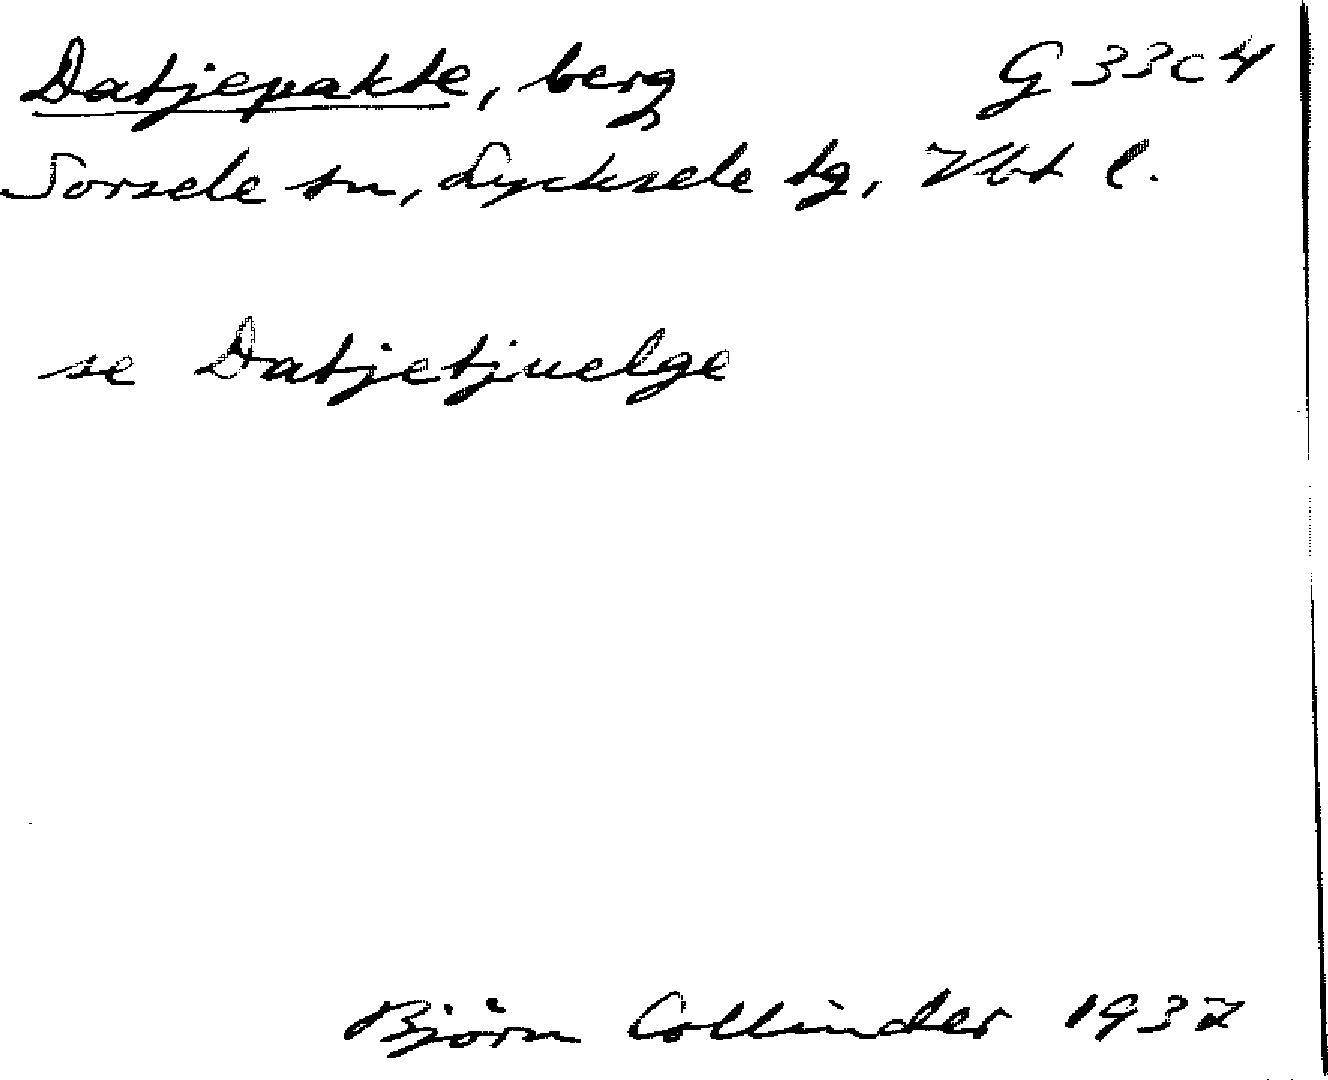 Datjepakte, berg G 33c4
Sorsele sn, Lycksele tg, Vbt l.
se Datjetjuelge
Björn Collinder 1937